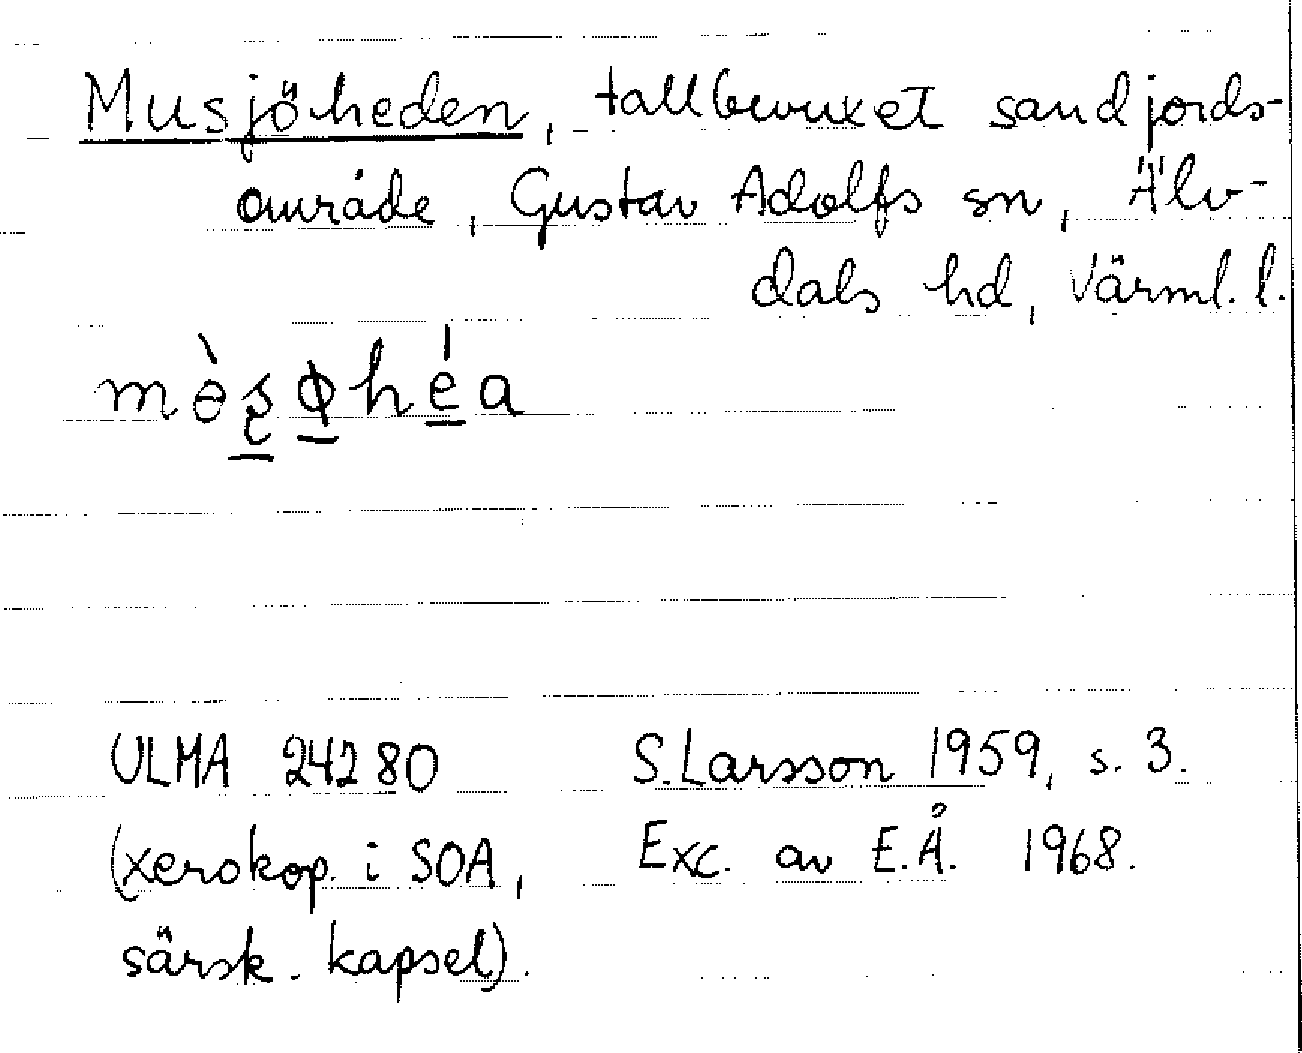 Musjöheden, tallbevuxet sandjords-
område, Gustav Adolfs sn, Älv-
dals hd, Värml. l.
ULMA 24280
(xerokop. i SOA,
särsk. kapsel).
S. Larsson 1959, s. 3.
Exc. av E.Å. 1968.